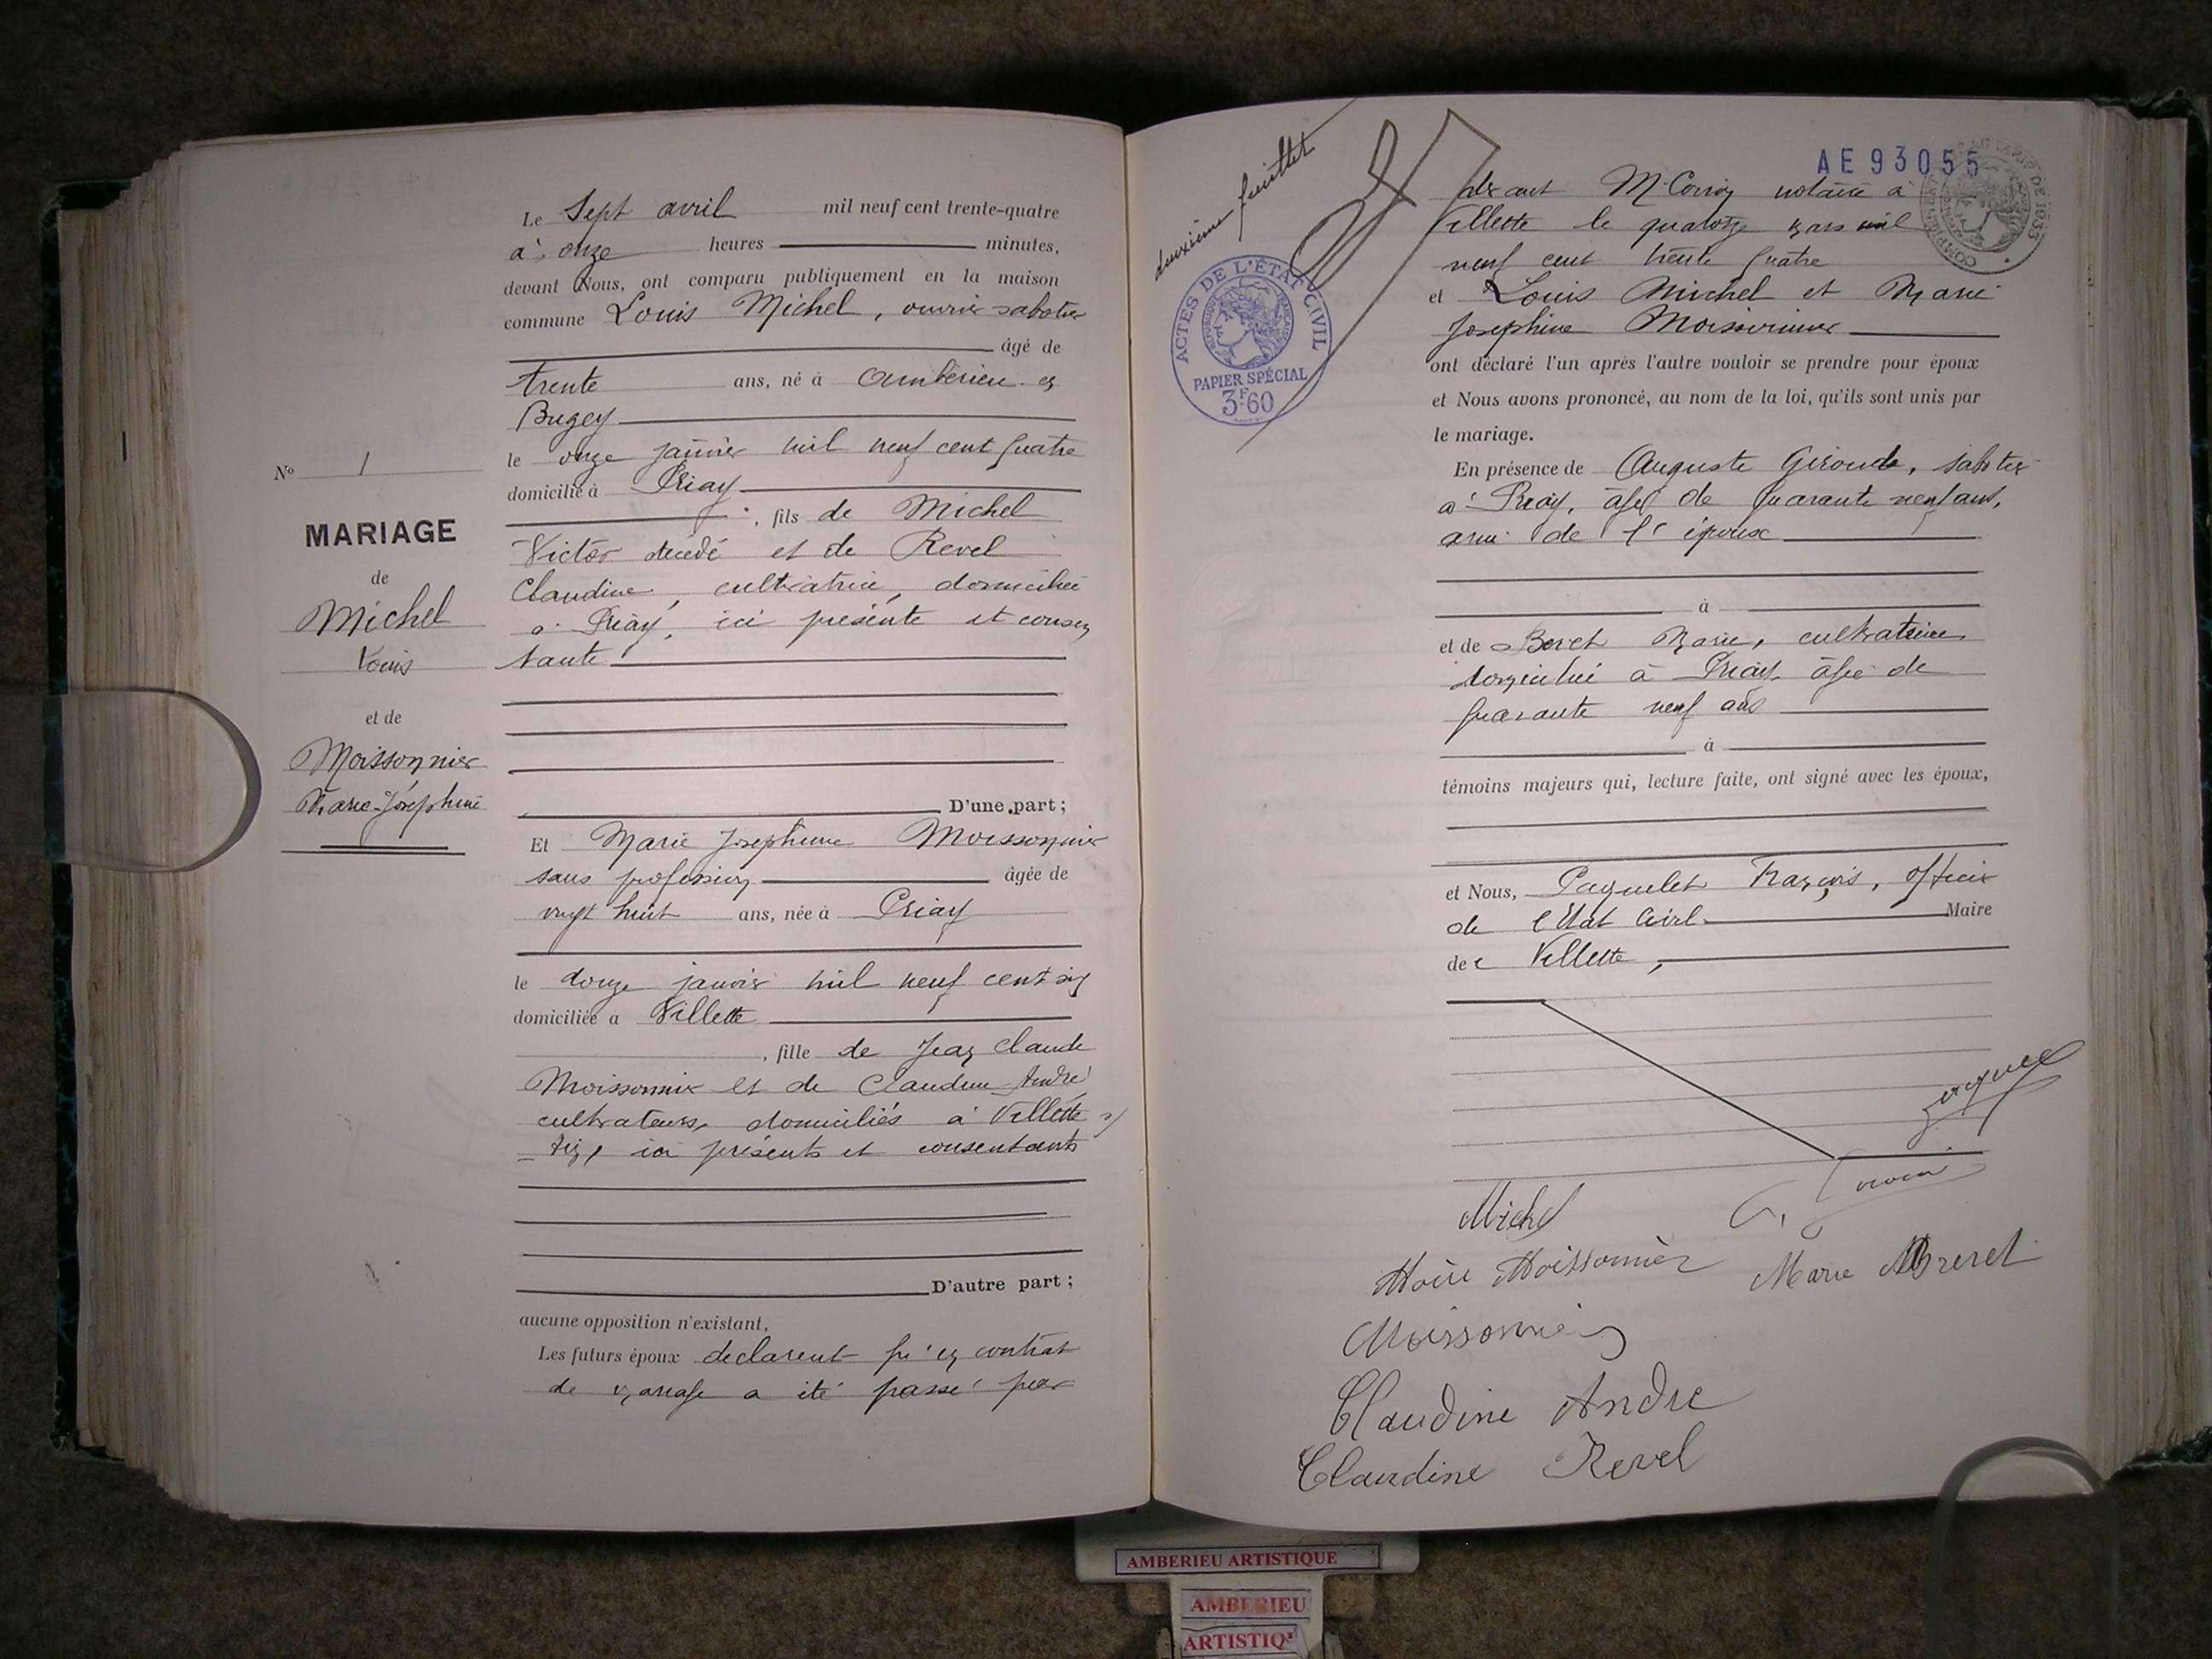 Le Sept avril mil neuf cent trente-quatre
à onze heures minutes,
devant Nous, ont comparu publiquement en la maison
commune Louis Michel, ouvrier sabotier
âgé de
trente ans, né à Ambérieu en
Bugey
le onze janvier mil neuf cent quatre
domicilié à Priay
, fils de Michel
Victor décédé et de Revel
Claudine, cultivatrice, domiciliée
à Priay, ici présente et consen
tante
D'une part;
Et Marie Josephine Moissonnier
sans profession âgée de
vingt huit ans, née à Priay
le douze janvier mil neuf cent six
domiciliée à Villette
, fille de Jean Claude
Moissonnier et de Claudine André
cultivateurs, domiciliés à Villette
ici présents et consentants
D'autre part;
aucune opposition n'existant,
Les futurs époux declarent qu'un contrat
de mariage a été passé par
No 1
MARIAGE
de
Michel
Louis
et de
Moissonnier
Marie-Joséphine
deuxième feuillet
ACTES DE L'ÉTAT CIVIL
RÉPUBLIQUE FRANÇAISE
PAPIER SPÉCIAL
3F60
AE93055
DE 1933
devant M notaire à
Villette le quatorze mars mil
neuf cent trente quatre
et Louis Michel et Marie
Josephine Moissonnier
ont déclaré l'un après l'autre vouloir se prendre pour époux
et Nous avons prononcé, au nom de la loi, qu'ils sont unis par
le mariage.
En présence de Auguste sabotier
à Priay, âgé de quarante neuf ans,
ami de l'époux
à
et de Marie, cultivatrice
domicilié à Priay âgée de
quarante neuf ans
à
témoins majeurs qui, lecture faite, ont signé avec les époux,
et Nous, Paquelet François, officier
de l'Etat Civil Maire
de Villette,
Michel
Moissonnier
Marie
Moissonnier
Claudine Andre
Claudine Revel
AMBERIEU ARTISTIQUE
AMBERIEU
ARTISTIQ